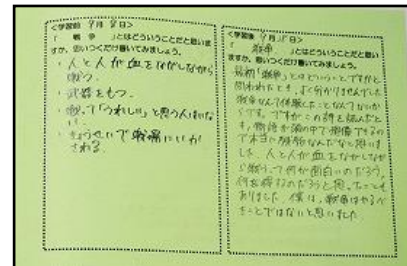 <学習前 9月 8日>
「 戦争 」とはどういうことだと思いま
すか。思いつくだけ書いてみましょう。
・人と人が血をながしながら
戦う。
・武器をもつ。
・戦って「うれしい」と思う人はいな
い。
・きょうせいで戦場にいか
される。
<学習後 9月15日>
「 戦争 」とはどういうことだと思い
ますか。思いつくだけ書いてみましょう。
最初「戦争」とはどいうことですかと
問われたとき、よく分かりませんでした。
戦争なんて体験したことなんてないか
らです。ですがこの詩を読んだと
き、物語を頭の中で想像できるの
で本当に残酷なんだなと思いま
した。人と人が血をながしなが
ら戦って何が面白いのだろう、
何を得るのだろうと思ったことも
ありました。僕は、戦争はやるべ
きことではないと思いました。